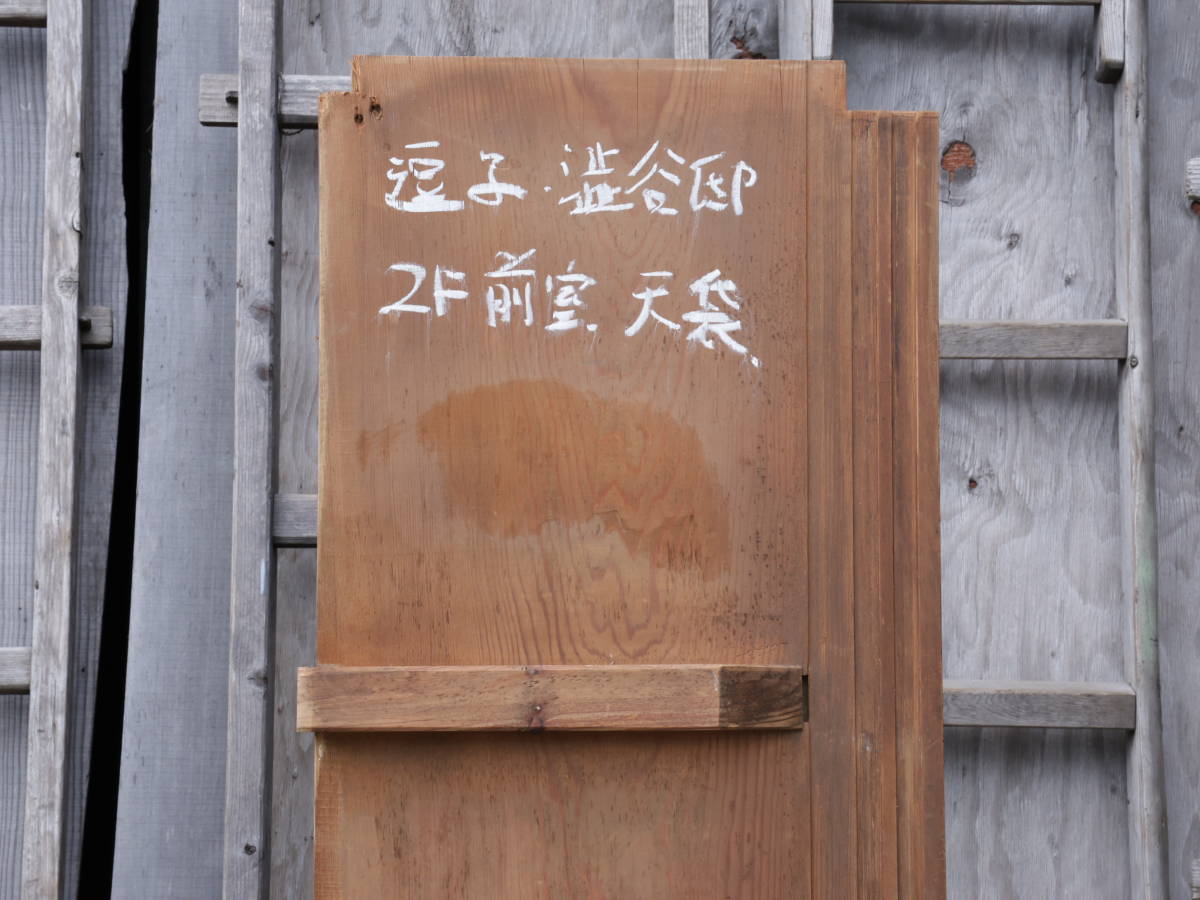 逗子 澁谷邸
2F 前室 天袋